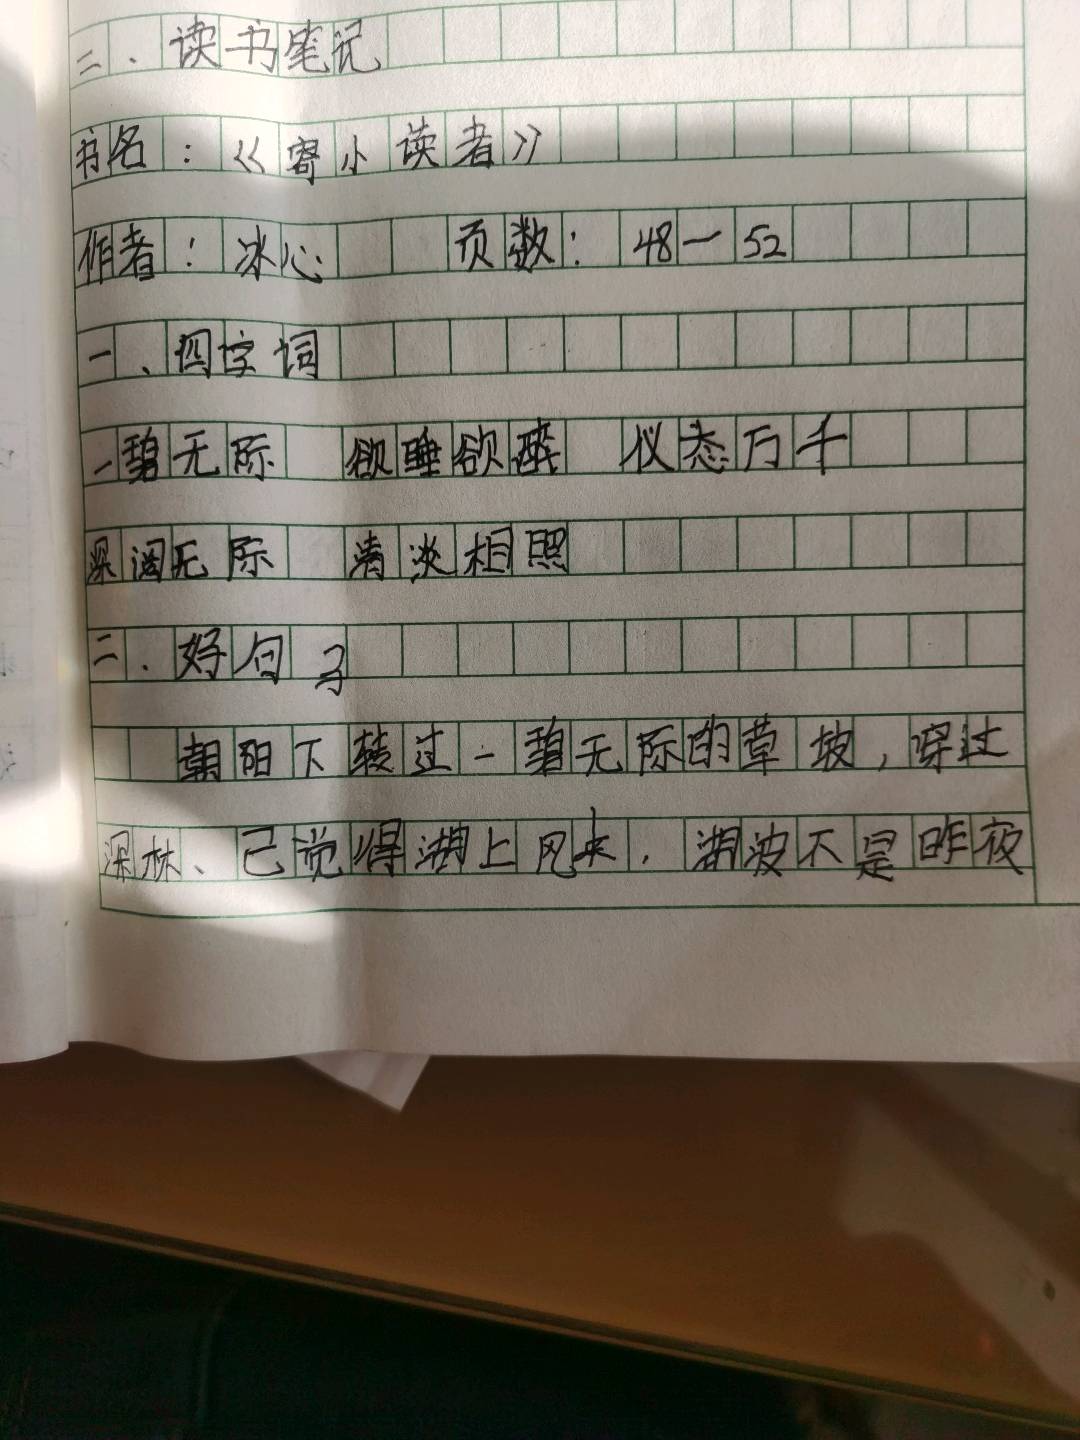 二.读书笔记
书名:《寄小读者》
作者:冰心 页数:48—52
一、四字词
一碧无际 欲睡欲醉 仪态万千
深阔无际 清淡相照
二.好句子
朝阳下转过一碧无际的草坡,穿过
深林、已觉得湖上风来,湖波不是昨夜